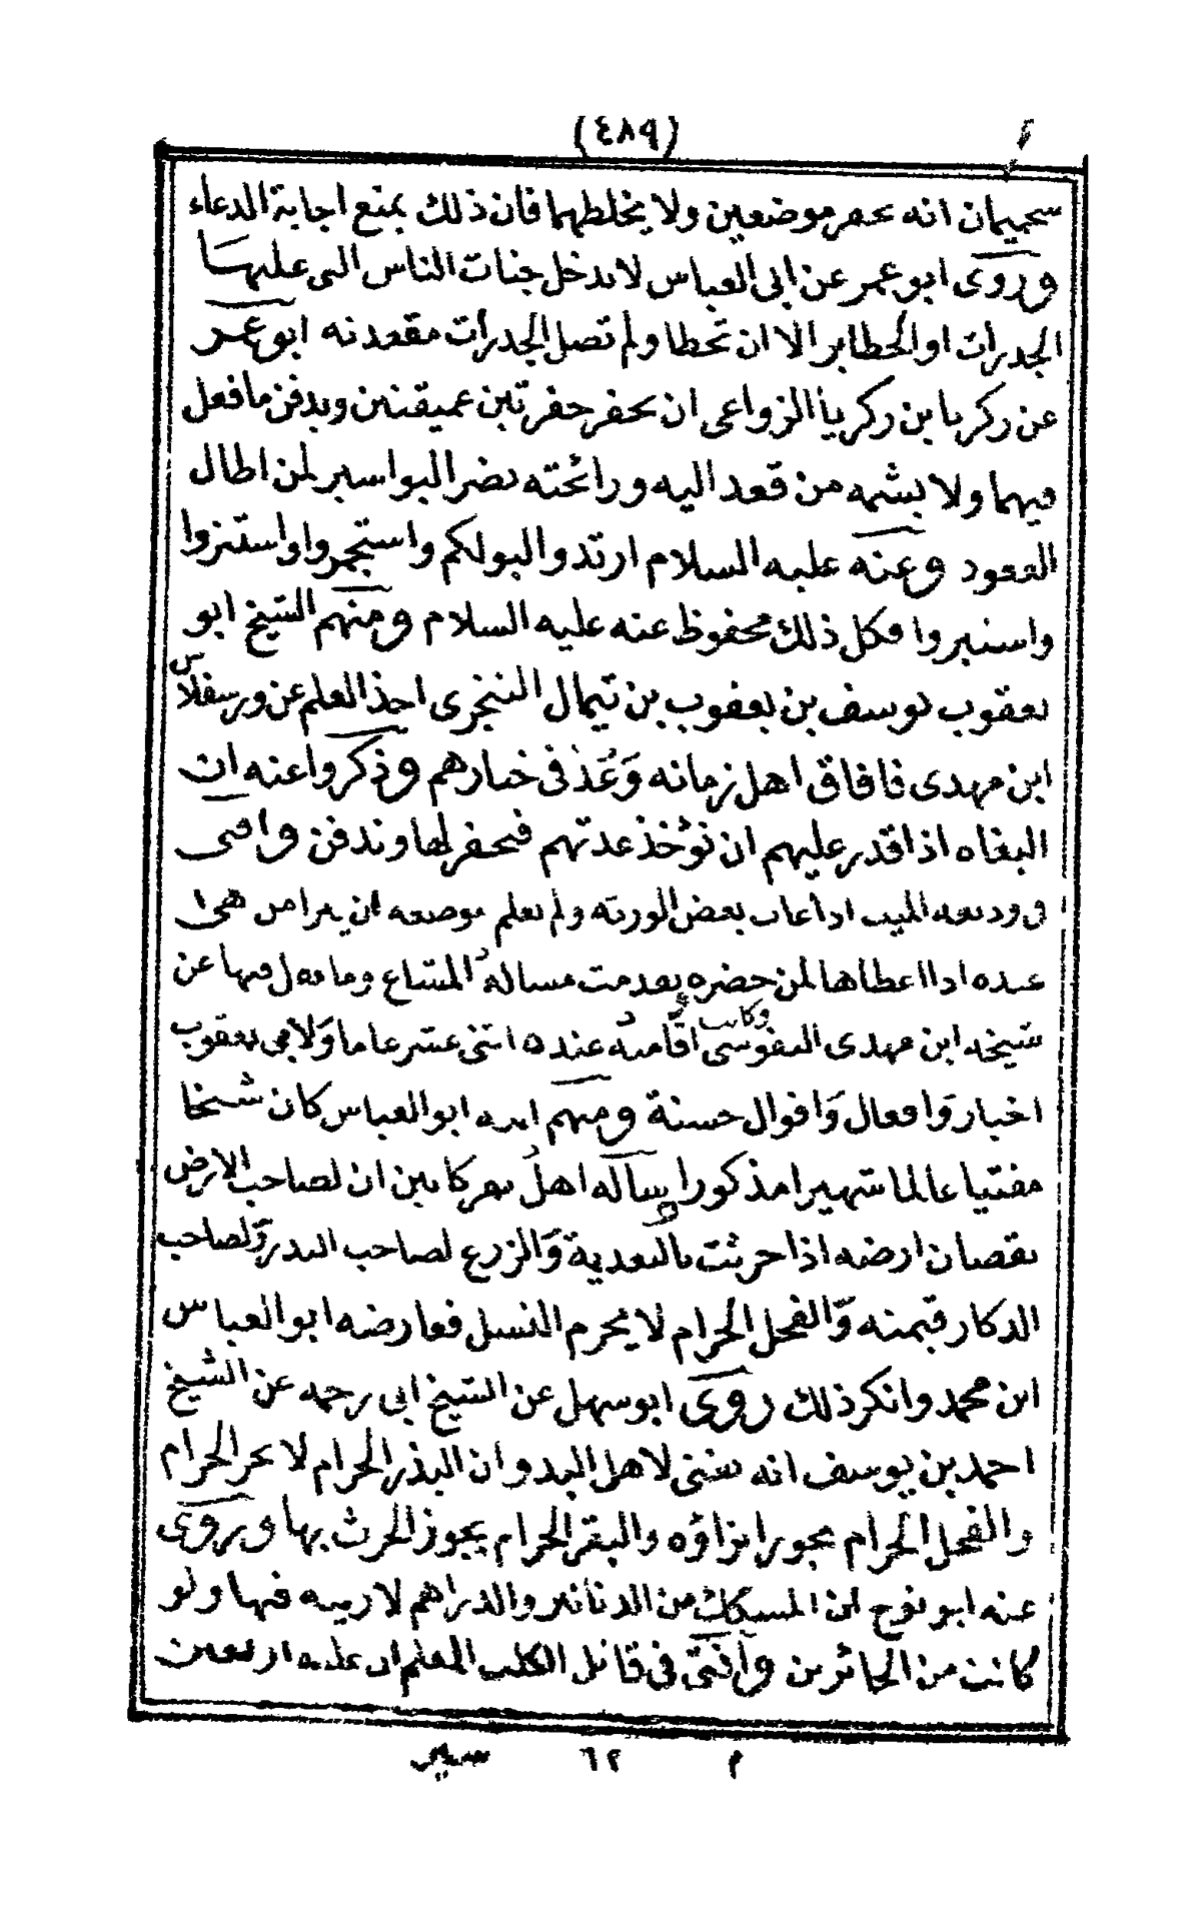 (٤٨٩)
سحميمان انه يحفر موضعين ولا يخلطهما فان ذلك يمنع اجابة الدعاء
وروى ابو عمر عن ابى العباس لا يدخل جنات الناس التى عليها
الجدرات او الحطاير الا ان تحطا ولم تصل الجدرات مقعدته ابو عمر
عن زكريا بن زكرياء الزواعى ان يحفر حفرتين عميقتين ويدفن ما فعل
فيهما ولا يشمه من قعد اليه ورائحته تضر البواسير لمن اطال
القعود وعنه عليه السلام ارتدوا لبولكم واستجمروا واستنزوا
واستبروا فكل ذلك محفوظ عنه عليه السلام ومنهم الشيخ ابو
يعقوب يوسف بن يعقوب بن تيمال اخذ العلم عن ورسفلاس
ابن مهدى فافاق اهل زمانه وعد فى خيارهم وذكروا عنه ان
البغاه اذا قدر عليهم ان تؤخذ عدتهم فيحفر لها وتدفن وافتى
فى وديعه الميت اذا غاب بعض الورثه ولم يعلم موضعه ان يبرا من هى
عنده اذا اعطاها لمن حضره بعد مت مساله المشاع وما فعل فيها عن
شيخه ابن مهدى النفوسى وكانت اقامته عنده اثنى عشر عاما ولابى يعقوب
اخبار وافعال واقوال حسنة ومنهم ابو العباس كان شيخا
مفتيا عالما شهيرا مذكورا يساله اهل ان لصاحب الارض
نقصان ارضه اذا حرثت بالتعدية والزرع لصاحب البدر ولصاحب
الدكار قيمته والفحل الحرام لا يحرم النسل فعارضه ابو العباس
ابن محمد وانكر ذلك روى ابو سهل عن الشيخ ابى رحمه عن الشيخ
احمد بن يوسف انه لاهل البدو ان البذر الحرام لا الحرام
والفحل الحرام يجوز انزاؤه والبقر الحرام يجوز الحرث بها ويروى
عنه ابو نوح ابن المسكك من الدنانير والدراهم لا ريبه فيها ولو
كانت من الجائرين وافتى فى قاتل الكلب المعلم ان عليه اربعين
م ٦٢ سير